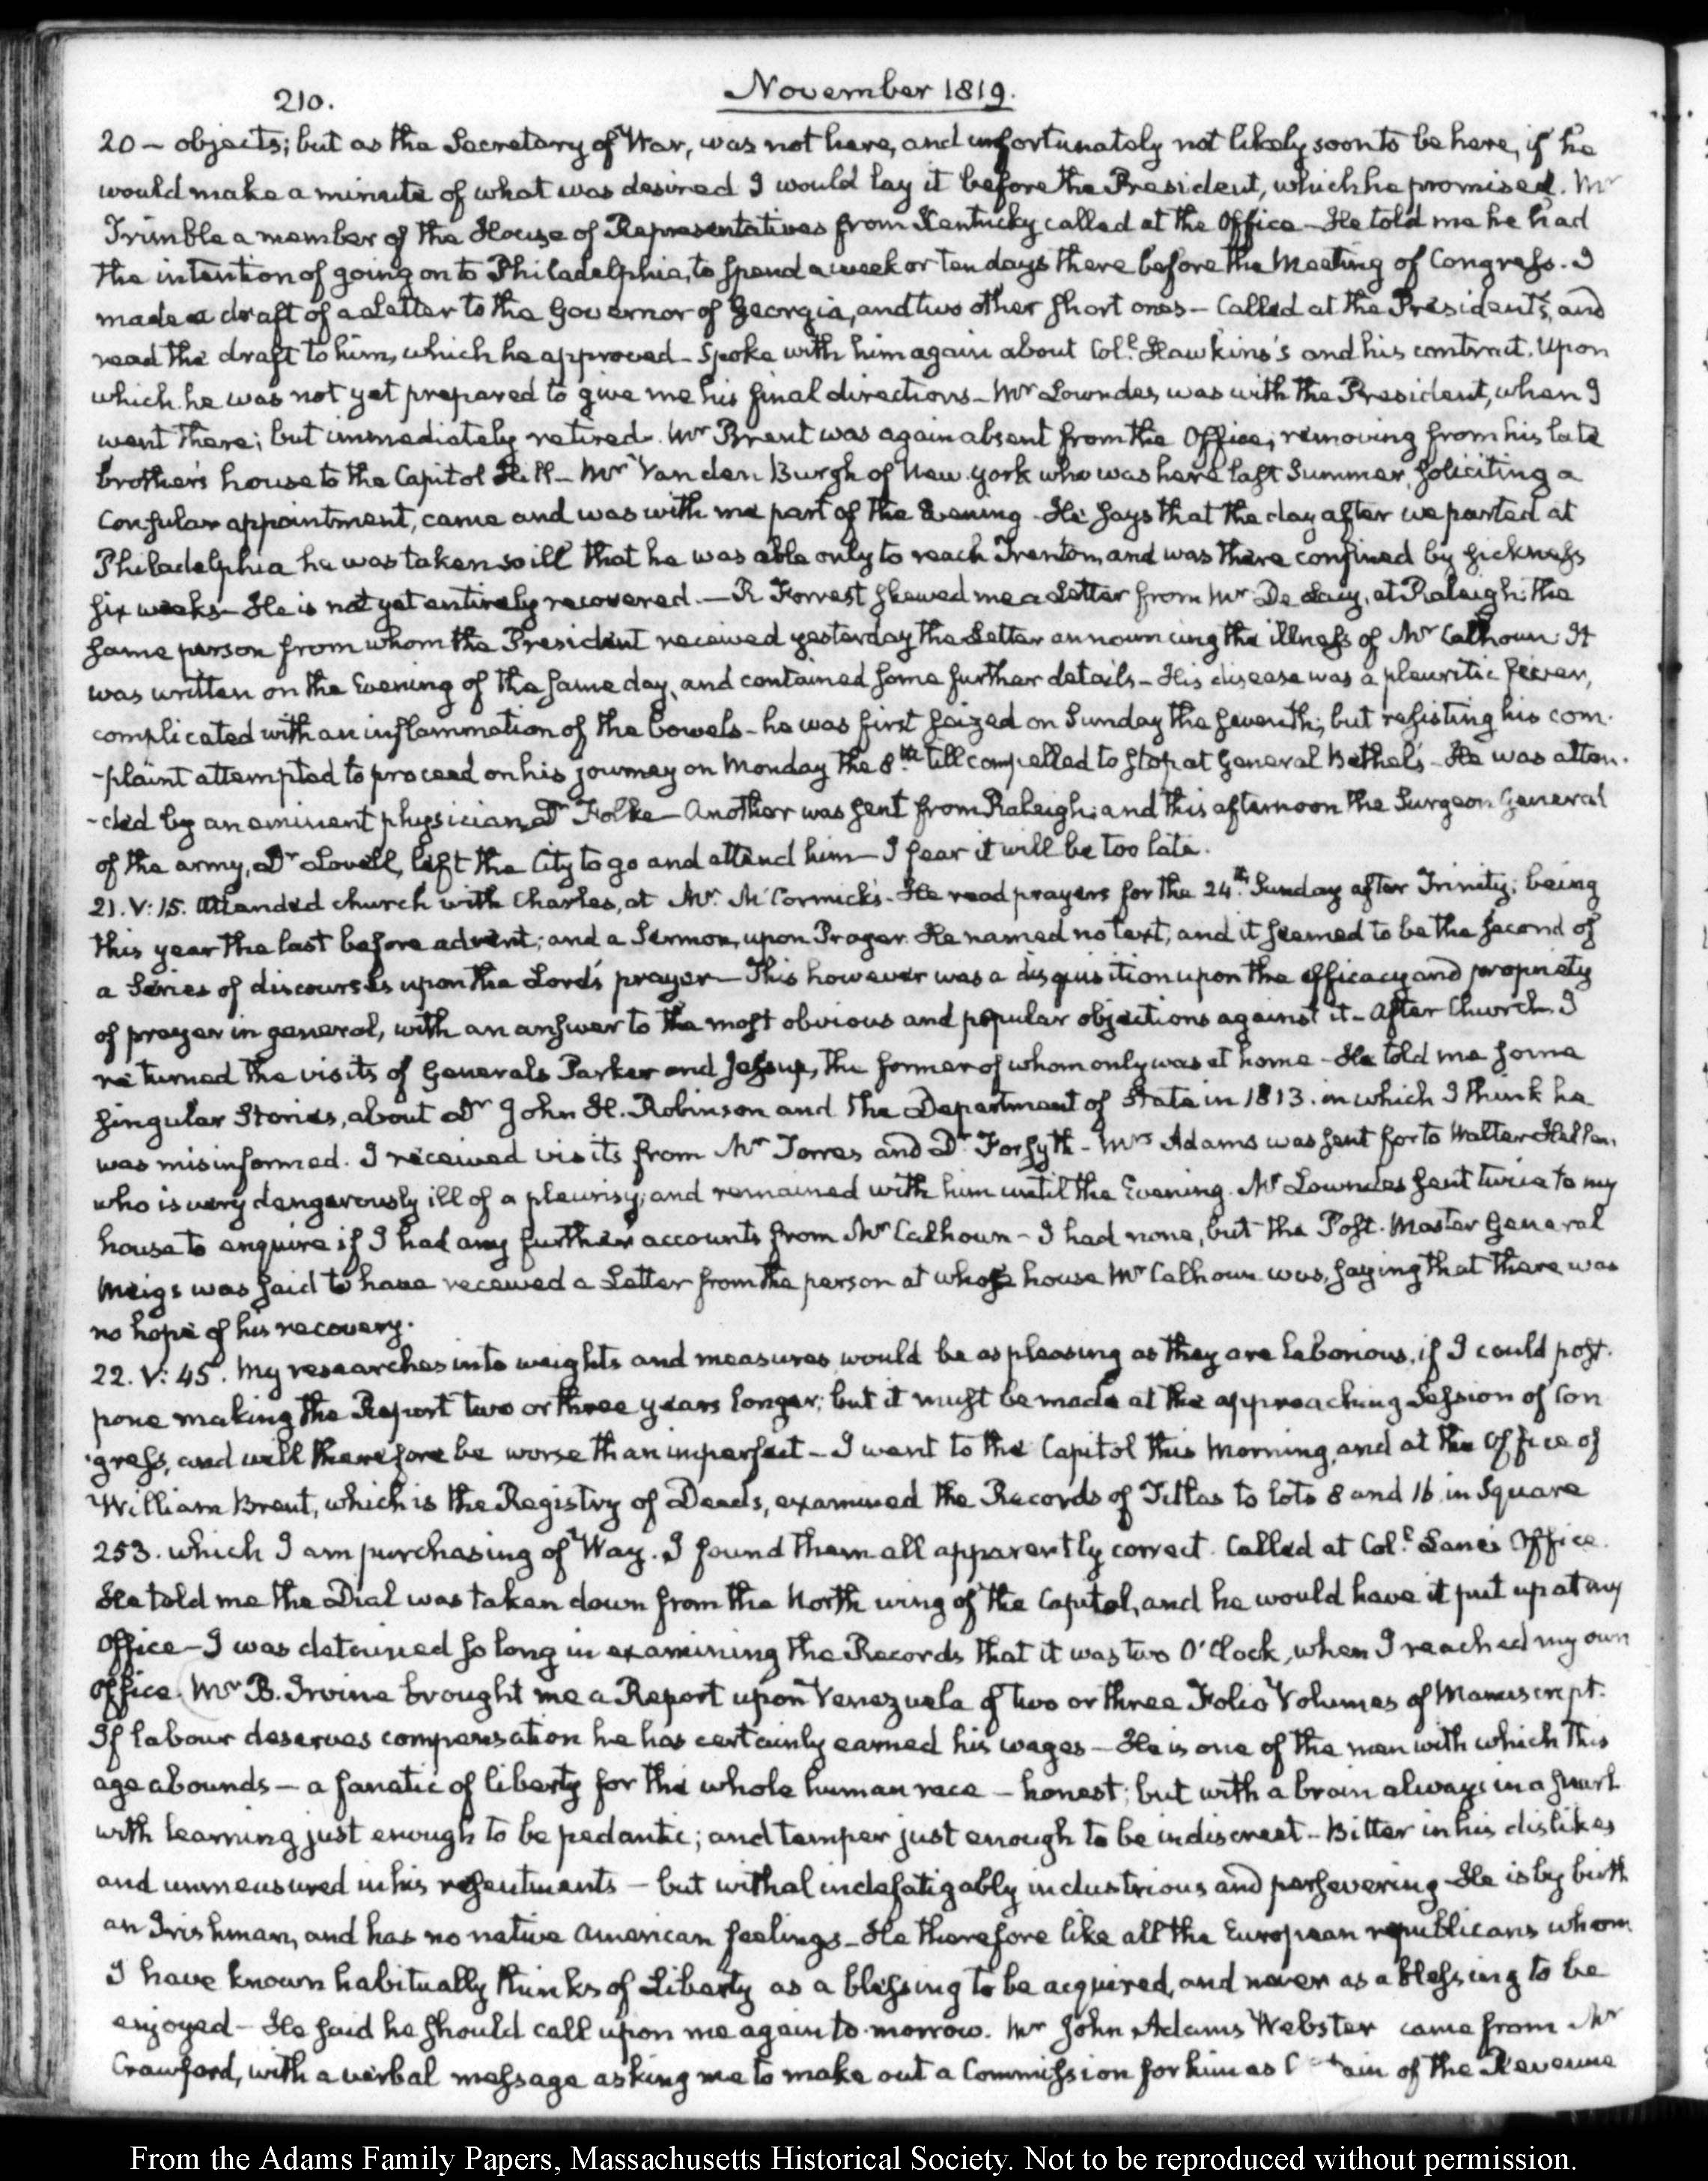 210.
November 1819.
20 – objects; but as the Secretary of War, was not here, and unfortunately not likely soon to be here, if he
would make a minute of what was desired I would lay it before the President, which he promised. Mr
Trimble a member of the House of Representatives from Kentucky called at the Office – He told me he had
the intention of going on to Philadelphia, to spend a week or ten days there before the Meeting of Congress. I
made a draft of a Letter to the Governor of Georgia, and two other short ones – Called at the President's, and
read the draft to him, which he approved – Spoke with him again about Coll. Hawkins's and his contract. Upon
which he was not yet prepared to give me his final directions – Mr Lowndes, was with the President, when I
went there; but immediately retired. Mr Brent was again absent from the Office; removing from his late
brother's house to the Capitol Hill – Mr Vanden Burgh of New York who was here last Summer, soliciting a
Consular appointment, came and was with me part of the Evening – He says that the day after we parted at
Philadelphia he was taken so ill that he was able only to reach Trenton, and was there confined by sickness
six weeks – He is not yet entirely recovered. – R Forrest shewed me a Letter from Mr De Lacy, at Raleigh; the
same person from whom the President received yesterday the Letter announcing the illness of Mr Calhoun. It
was written on the Evening of the same day, and contained some further details – His disease was a pleuritic fever,
complicated with an inflammation of the bowels – he was first seized on Sunday the seventh; but resisting his com-
-plaint attempted to proceed on his journey on Monday the 8th. till compelled to stop at General Bethel's – He was atten-
-ded by an eminent physician, Dr Folke – Another was sent from Raleigh; and this afternoon the Surgeon General
of the army, Dr Lovell, left the City to go and attend him – I fear it will be too late.
21. V: 15. Attended church with Charles, at Mr. McCormick's – He read prayers for the 24th. Sunday after Trinity; being
this year the last before advent; and a Sermon, upon Prayer. He named no text, and it seemed to be the second of
a Series of discourses upon the Lord's prayer – This however was a disquisition upon the efficacy and propriety
of prayer in general, with an answer to the most obvious and popular objections against it – After Church I
returned the visits of Generals Parker and Jessup, the former of whom only was at home – He told me some
singular Stories, about Dr John H. Robinson and the Department of State in 1813. in which I think he
was misinformed. I received visits from Mr Torres and Dr Forsyth – Mrs Adams was sent for to Walter Hellen,
who is very dangerously ill of a pleurisy; and remained with him until the Evening. Mr Lowndes sent twice to my
house to enquire if I had any further accounts from Mr Calhoun – I had none, but the Post-Master General
Meigs was said to have received a Letter from the person at whose house Mr Calhoun was, saying that there was
no hope of his recovery.
22. V: 45. My researches into weights and measures, would be as pleasing as they are laborious, if I could post-
pone making the Report two or three years longer; but it must be made at the approaching Session of Con-
-gress, and will therefore be worse than imperfect – I went to the Capitol this Morning, and at the Office of
William Brent, which is the Registry of Deeds, examined the Records of Titles to lots 8 and 16 in Square
253. which I am purchasing of Way. I found them all apparently correct. Called at Coll. Lane's Office.
He told me the Dial was taken down from the North wing of the Capitol, and he would have it put up at my
Office – I was detained so long in examining the Records that it was two O'Clock, when I reached my own
Office. Mr B. Irvine brought me a Report upon Venezuela of two or three Folio Volumes of Manuscript.
If labour deserves compensation he has certainly earned his wages – He is one of the men with which this
age abounds – a fanatic of liberty for the whole human race – honest; but with a brain always in a snarl
with learning just enough to be pedantic; and temper just enough to be indiscreet – Bitter in his dislikes
and unmeasured in his resentments – but withal indefatigably industrious and persevering – He is by birth
an Irishman, and has no native American feelings – He therefore like all the European republicans whom
I have known habitually thinks of Liberty as a blessing to be acquired, and never as a blessing to be
enjoyed – He said he should call upon me again to-morrow. Mr John Adams Webster came from Mr
Crawford, with a verbal message asking me to make out a Commission for him as of the Revenue
From the Adams Family Papers, Massachusetts Historical Society. Not to be reproduced without permission.